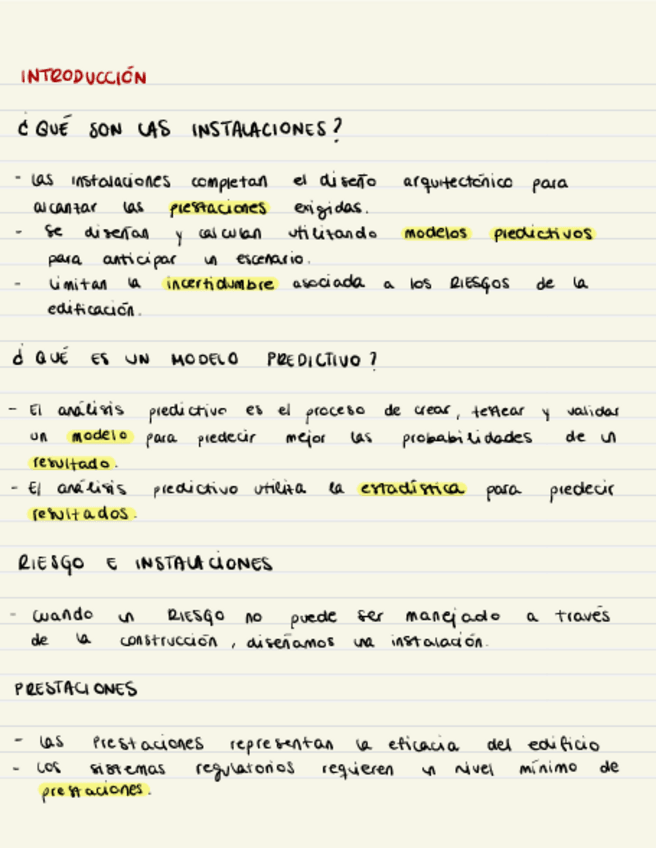 INTRODUCCIÓN
¿QUÉ SON LAS INSTALACIONES?
- Las instalaciones completan el diseño arquitectónico para
alcanzar las prestaciones exigidas.
- Se diseñan y calculan utilizando modelos predictivos
para anticipar un escenario.
- Limitan la incertidumbre asociada a los RIESGOS de la
edificación.
¿QUÉ ES UN MODELO PREDICTIVO?
- El análisis predictivo es el proceso de crear, testear y validar
un modelo para predecir mejor las probabilidades de un
resultado.
- El análisis predictivo utiliza la estadística para predecir
resultados.
RIESGO E INSTALACIONES
- Cuando un RIESGO no puede ser manejado a través
de la construcción, diseñamos una instalación.
PRESTACIONES
- Las Prestaciones representan la eficacia del edificio
- Los sistemas regulatorios requieren un nivel mínimo de
prestaciones.